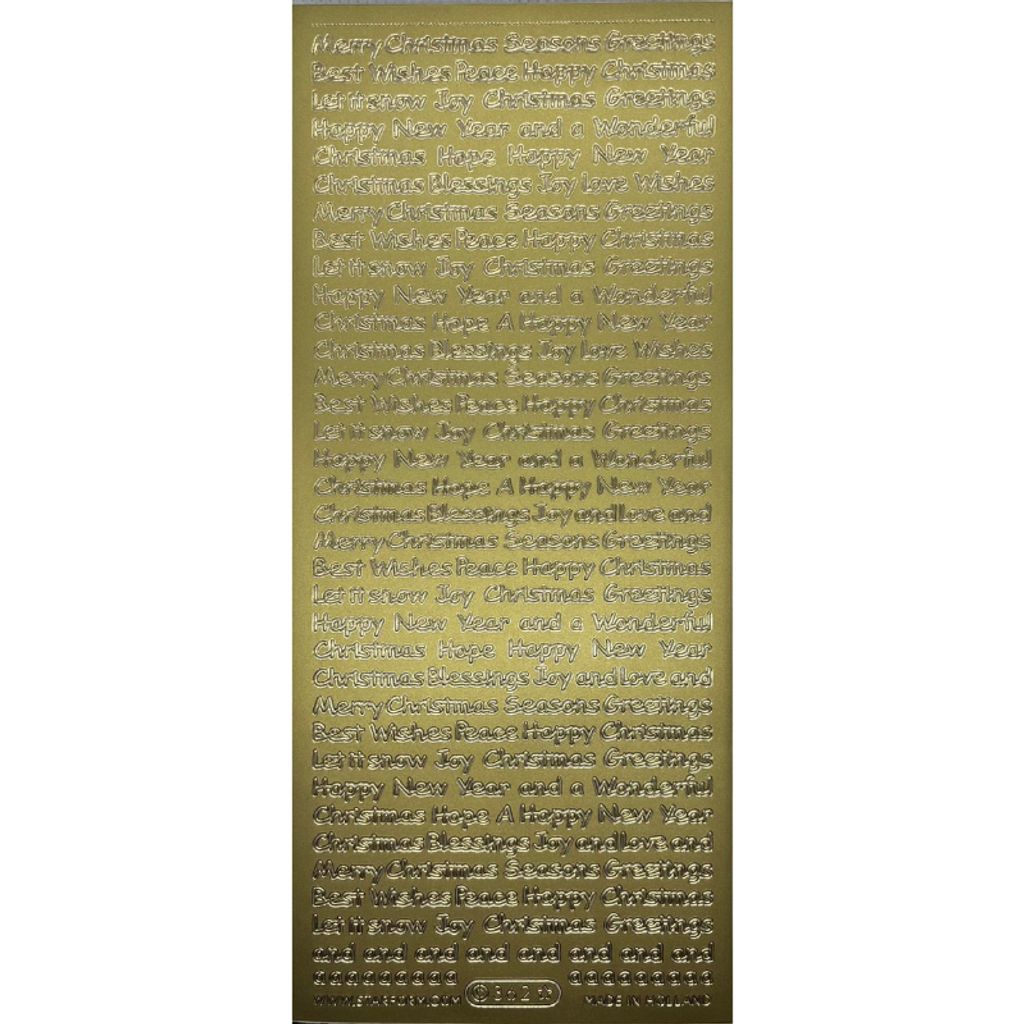 Merry Christmas Seasons Greetings
Best Wishes Peace Happy Christmas
Let it snow Joy Christmas Greetings
Happy New Year and a Wonderful
Christmas Hope Happy New Year
Christmas Blessings Joy Love Wishes
Merry Christmas Seasons Greetings
Best Wishes Peace Happy Christmas
Let it snow Joy Christmas Greetings
Happy New Year and a Wonderful
Christmas Hope A Happy New Year
Christmas Blessings Joy Love Wishes
Merry Christmas Seasons Greetings
Best Wishes Peace Happy Christmas
Let it snow Joy Christmas Greetings
Happy New Year and a Wonderful
Christmas Hope A Happy New Year
Christmas Blessings Joy and Love and
Merry Christmas Seasons Greetings
Best Wishes Peace Happy Christmas
Let it snow Joy Christmas Greetings
Happy New Year and a Wonderful
Christmas Hope Happy New Year
Christmas Blessings Joy and Love and
Merry Christmas Seasons Greetings
Best Wishes Peace Happy Christmas
Let it snow Joy Christmas Greetings
Happy New Year and a Wonderful
Christmas Hope A Happy New Year
Christmas Blessings Joy and Love and
Merry Christmas Seasons Greetings
Best Wishes Peace Happy Christmas
Let it snow Joy Christmas Greetings
and and and and and and and and
a a a a a a a a a a a a a a a a a a
WWW.STARFORM.COM © 362 MADE IN HOLLAND